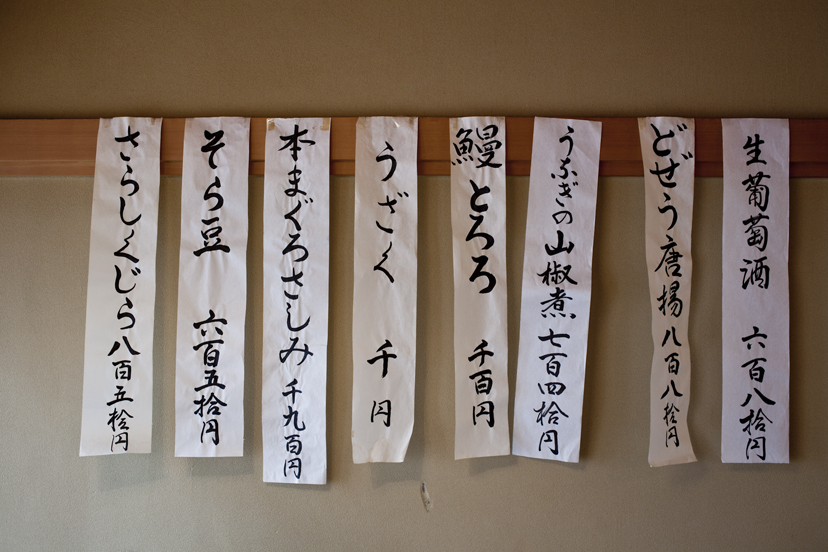 生葡萄酒 六百八拾円
どぜう唐揚 八百八拾円
うなぎの山椒煮 七百四拾円
鰻とろろ 千百円
うざく 千円
本まぐろさしみ 千九百円
そら豆 六百五拾円
さらしくじら 八百五拾円